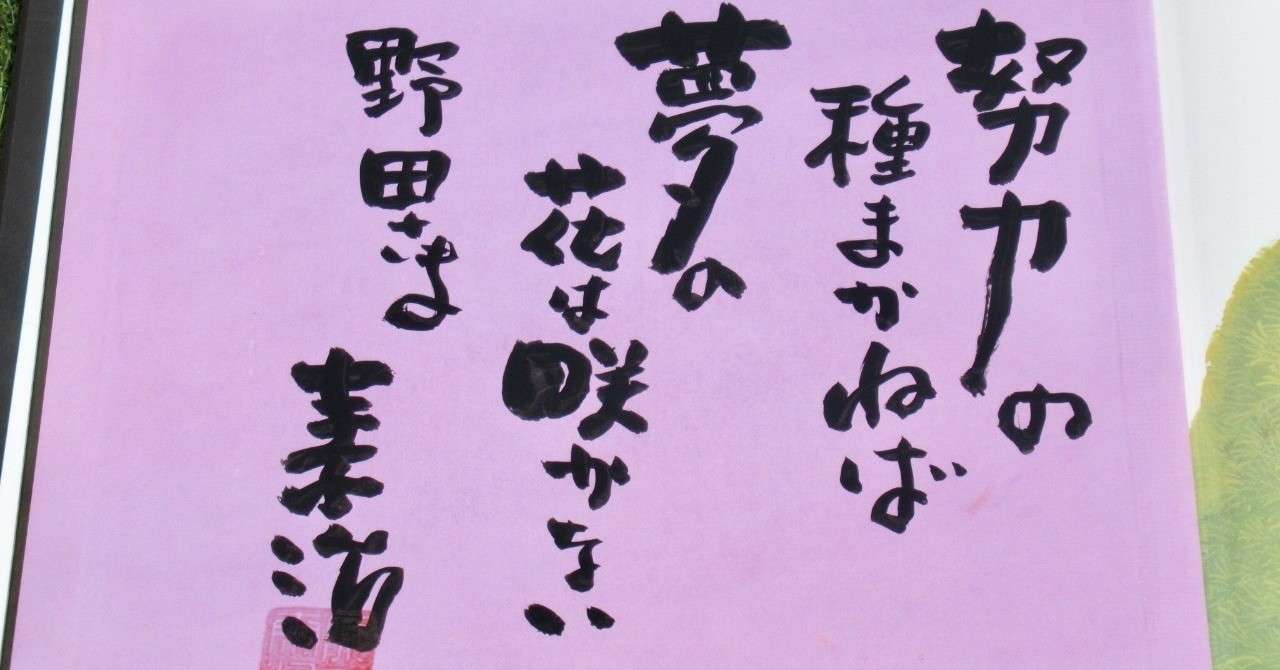 努力の
種まかねば
夢の
花は咲かない
野田さま